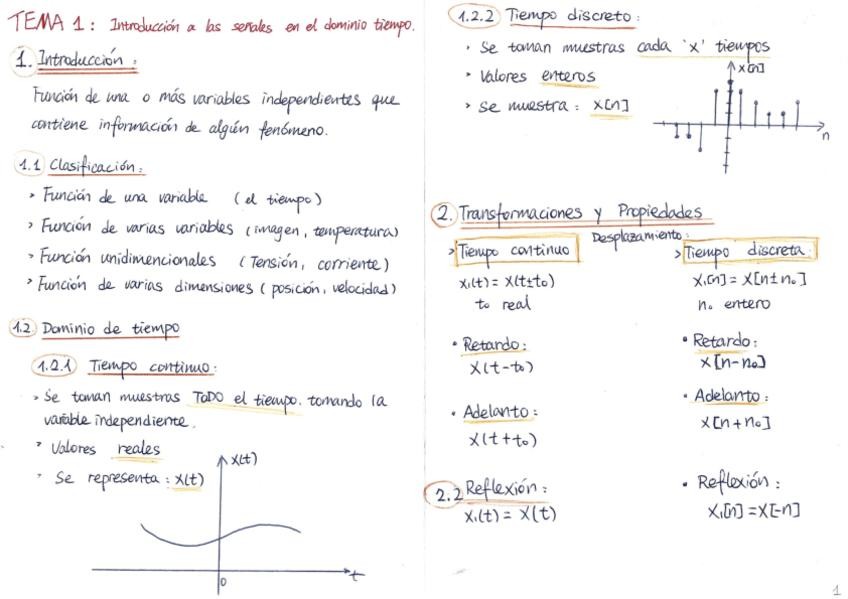 TEMA 1: Introducción a las señales en el dominio tiempo.
1. Introducción:
Función de una o más variables independientes que
contiene información de algún fenómeno.
1.1 Clasificación:
> Función de una variable (el tiempo)
> Función de varias variables (imagen, temperatura)
> Función unidimencionales (Tensión, corriente)
> Función de varias dimensiones (posición, velocidad)
1.2. Dominio de tiempo
1.2.1 Tiempo continuo:
> Se toman muestras TODO el tiempo. tomando la
variable independiente.
> Valores reales
> Se representa: x(t)
x(t)
0
t
1.2.2 Tiempo discreto:
• Se toman muestras cada 'x' tiempos
• Valores enteros
> Se muestra: x[n]
x[n]
n
2. Transformaciones y Propiedades
Desplazamiento:
> Tiempo continuo
x₁(t) = x(t±t₀)
t₀ real
• Retardo:
x(t-t₀)
• Adelanto:
x(t+t₀)
> Tiempo discreta.
x₁[n] = x[n±n₀]
n₀ entero
• Retardo:
x[n-n₀]
• Adelanto:
x[n+n₀]
2.2 Reflexión:
x₁(t) = x(t)
• Reflexión:
x₁[n] = x[-n]
1